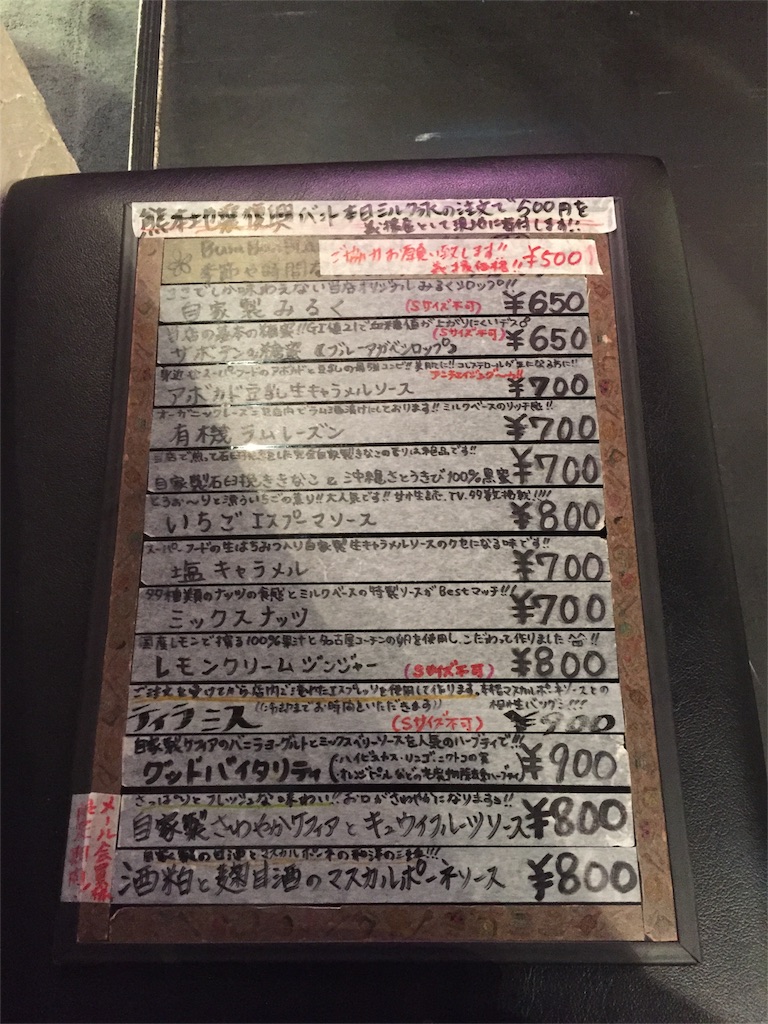 熊本地震復興 バント 本日ミルク氷の注文で500円を
義援金として現地に寄付します!!
季節や時間
ご協力お願い致します!! ¥500
義援価格!!
ここでしか味わえない当店オリジナルみるくシロップ!!
自家製みるく (Sサイズ不可) ¥650
当店の基本の糖蜜!!GI値21で血糖値が上がりにくいデス
サボテンの糖蜜『ブルーアガベシロップ』 (Sサイズ不可) ¥650
アンチエイジング
アボカド豆乳生キャラメルソース ¥700
ミルクベースのリッチ
有機ラムレーズン ¥700
当店で煎って石臼挽きをした完全自家製きなこの香りは絶品です!!
自家製石臼挽ききなこと沖縄さとうきび100%黒蜜 ¥700
とろお〜りと漂ういちごの薫り!!大人気です!!
いちごエスプーマソース ¥800
スーパーフードの生はちみつ入り自家製生キャラメルソースのクセになる味です!!
塩キャラメル ¥700
ナッツの食感とミルクベースの特製ソースがBestマッチ!!
ミックスナッツ ¥700
国産レモンで搾る100%果汁と名古屋コーチンの卵を使用し、こだわって作りました!!
レモンクリームジンジャー (Sサイズ不可) ¥800
ご注文を受けてから店内で淹れたエスプレッソを使用して作ります。本格マスカルポーネソースとの
相性バツグン!!!
ティラミス (Sサイズ不可) ¥900
自家製ケフィアのバニラヨーグルトとミックスベリーソースを人気のハーブティで!!!
グッドバイタリティ (ハイビスカス・リンゴ・ニワトコの実 ¥900
さっぱりとフレッシュな味わい!!お口がさわやかになりますョ!!
自家製さわやかケフィアとキュウイフルーツソース ¥800
メール会員様
酒粕と麹甘酒のマスカルポーネソース ¥800